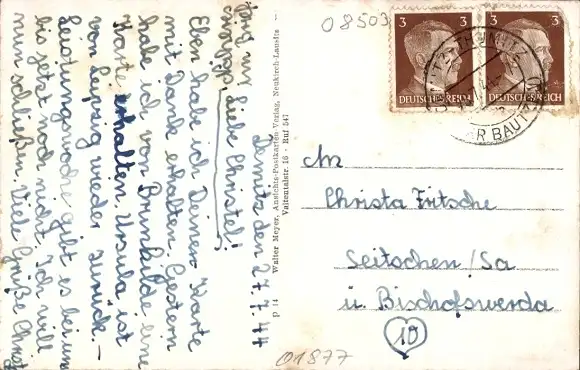 Demitz den 27.7.44
Liebe Christel!
Eben habe ich Deine Karte
mit Dank erhalten. Gestern
habe ich von Brunhilde eine
Karte erhalten. Ursula ist
von Leipzig wieder zurück. —
Leistungswoche gibt es bei uns
bis jetzt noch nicht. Ich will
nun schließen. Viele Grüße Christ
P 14 Walter Meyer, Ansichts-Postkarten Verlag, Neukirch-Lausitz
Valtentalstr. 16 - Ruf 547
08503
3 3
DEUTSCHES REICH
3 3
DEUTSCHES REICH
An
Christa Fritsche
Seitschen/Sa
ü. Bischofswerda
10
01877